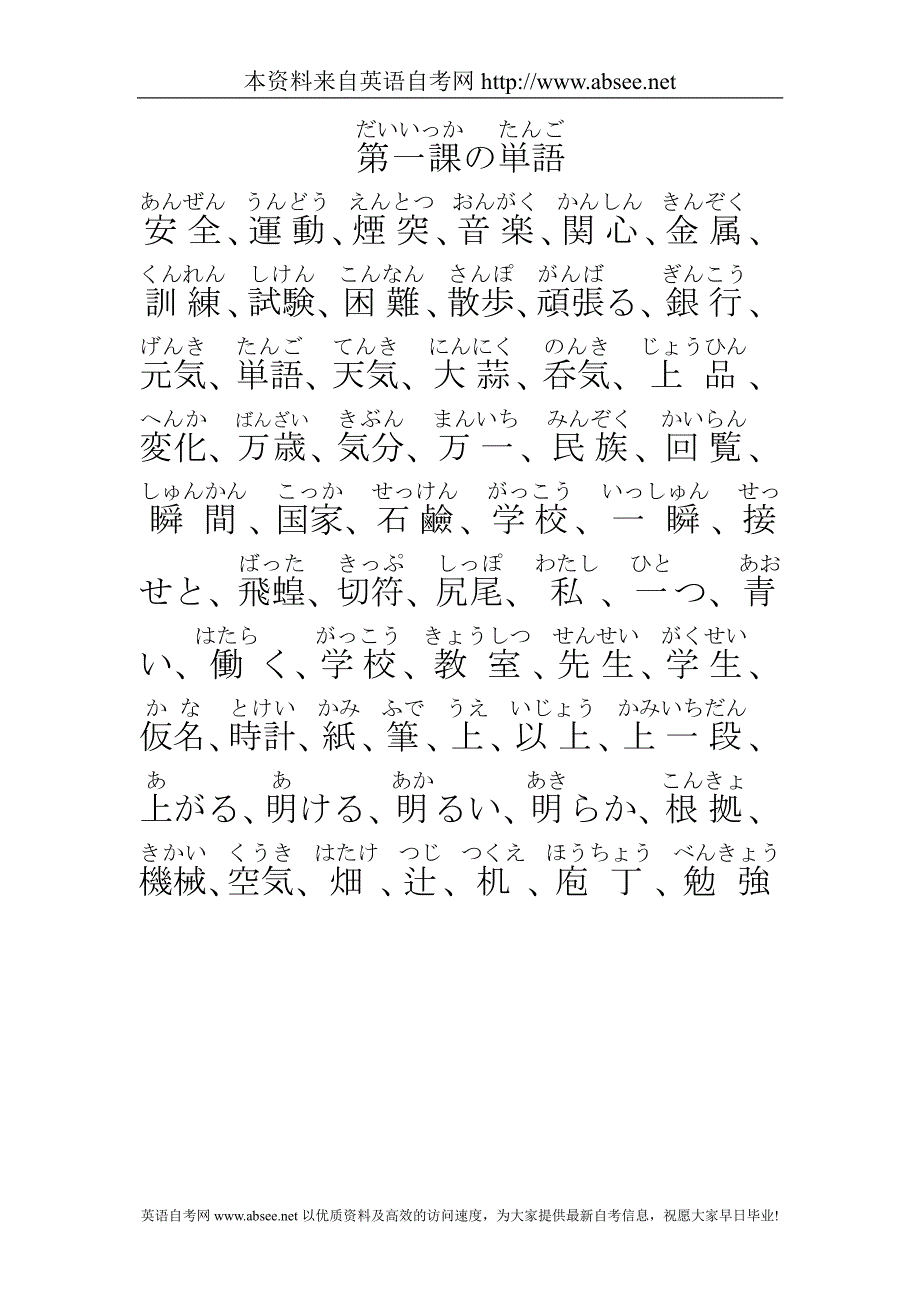 本资料来自英语自考网 http://www.absee.net
だいいっか たんご
第一課の単語
あんぜん うんどう えんとつ おんがく かんしん きんぞく
安全、運動、煙突、音楽、関心、金属、
くんれん しけん こんなん さんぽ がんば ぎんこう
訓練、試験、困難、散歩、頑張る、銀行、
げんき たんご てんき にんにく のんき じょうひん
元気、単語、天気、大蒜、呑気、上品、
へんか ばんざい きぶん まんいち みんぞく かいらん
変化、万歳、気分、万一、民族、回覧、
しゅんかん こっか せっけん がっこう いっしゅん せっ
瞬間、国家、石鹸、学校、一瞬、接
ばった きっぷ しっぽ わたし ひと あお
せと、飛蝗、切符、尻尾、私、一つ、青
はたら がっこう きょうしつ せんせい がくせい
い、働く、学校、教室、先生、学生、
かな とけい かみ ふで うえ いじょう かみいちだん
仮名、時計、紙、筆、上、以上、上一段、
あ あ あか あき こんきょ
上がる、明ける、明るい、明らか、根拠、
きかい くうき はたけ つじ つくえ ほうちょう べんきょう
機械、空気、畑、辻、机、庖丁、勉強
英语自考网 www.absee.net 以优质资料及高效的访问速度，为大家提供最新自考信息，祝愿大家早日毕业!